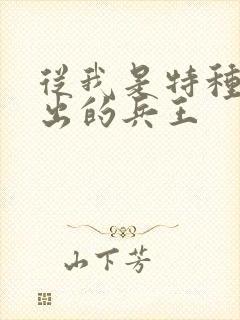 從我是特種
出的兵王
山下芳